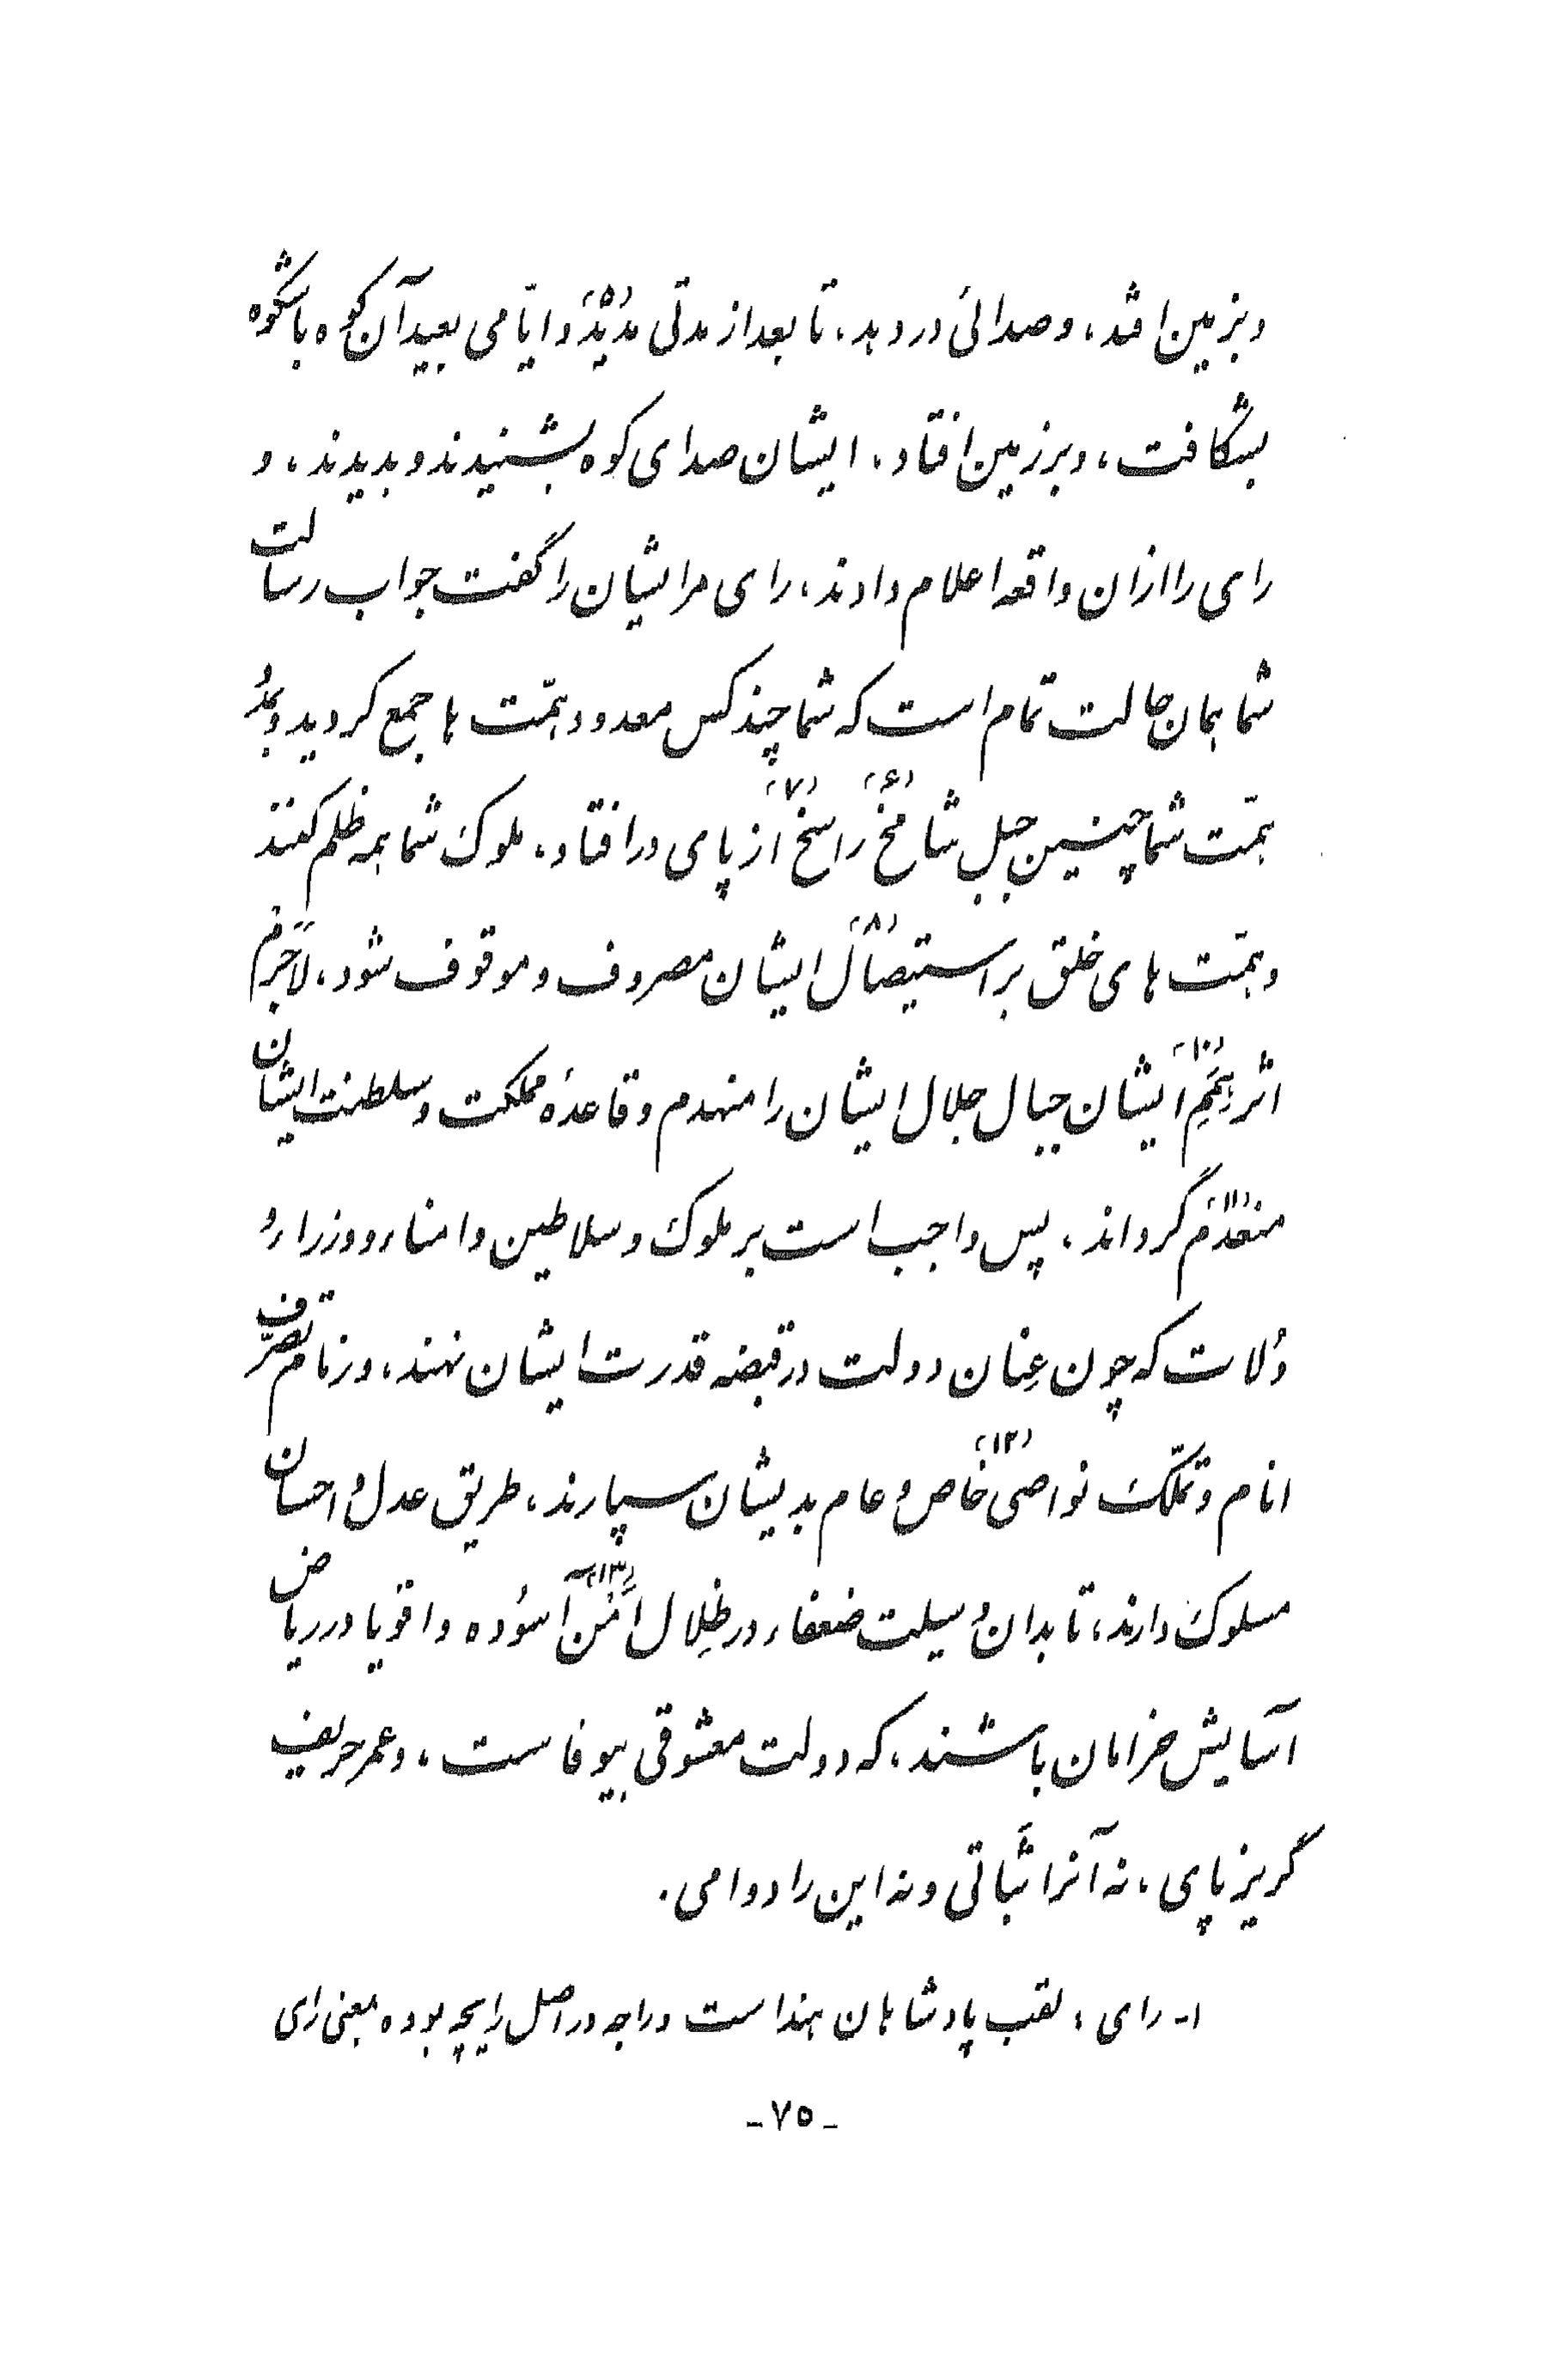 و بزمین افتد، و صدائی در دهد، تا بعد از مدتی مدید (۵) و ایّامی بعید آن کوه باشکوه
بشکافت، و بر زمین افتاد، ایشان صدای کوه بشنیدند و بدیدند، و
رای را ازان واقعه اعلام دادند، رای مرایشان را گفت جواب رسالت
شما همان حالت تمام است که شما چند کس معدود همّت ها جمع کردید و بمدد
همّت شما چنین جبل شامخ (۶) راسخ (۷) از پای در افتاد، ملوک شما همه ظلم کنند
و همّت های خلق بر استیصال (۸) ایشان مصروف و موقوف شود، لاجرم
اثر هِمَمِ (۱۰) ایشان جبال جلال ایشان را منهدم و قاعدهٔ مملکت و سلطنت ایشان
منعدم (۱۱) گرداند، پس واجب است بر ملوک و سلاطین و امناء و وزراء و
وُلات که چون عِنان دولت در قبضه قدرت ایشان نهند، و زمام تصرّف
انام و تملّک نواصی (۱۲) خاص و عام بدیشان سپارند، طریق عدل و احسان
مسلوک دارند، تا بدان وسیلت ضعفاء در ظِلال اَمْن (۱۳) آسوده و اقویا در ریاض
آسایش خرامان باشند، که دولت معشوقی بیوفاست، و عمر حریف
گریز پای، نه آنرا ثَباتی و نه این را دوامی.
۱- رای، لقب پادشاهان هند است و راجه در اصل رایچه بوده بمعنی رای
-۷۵-